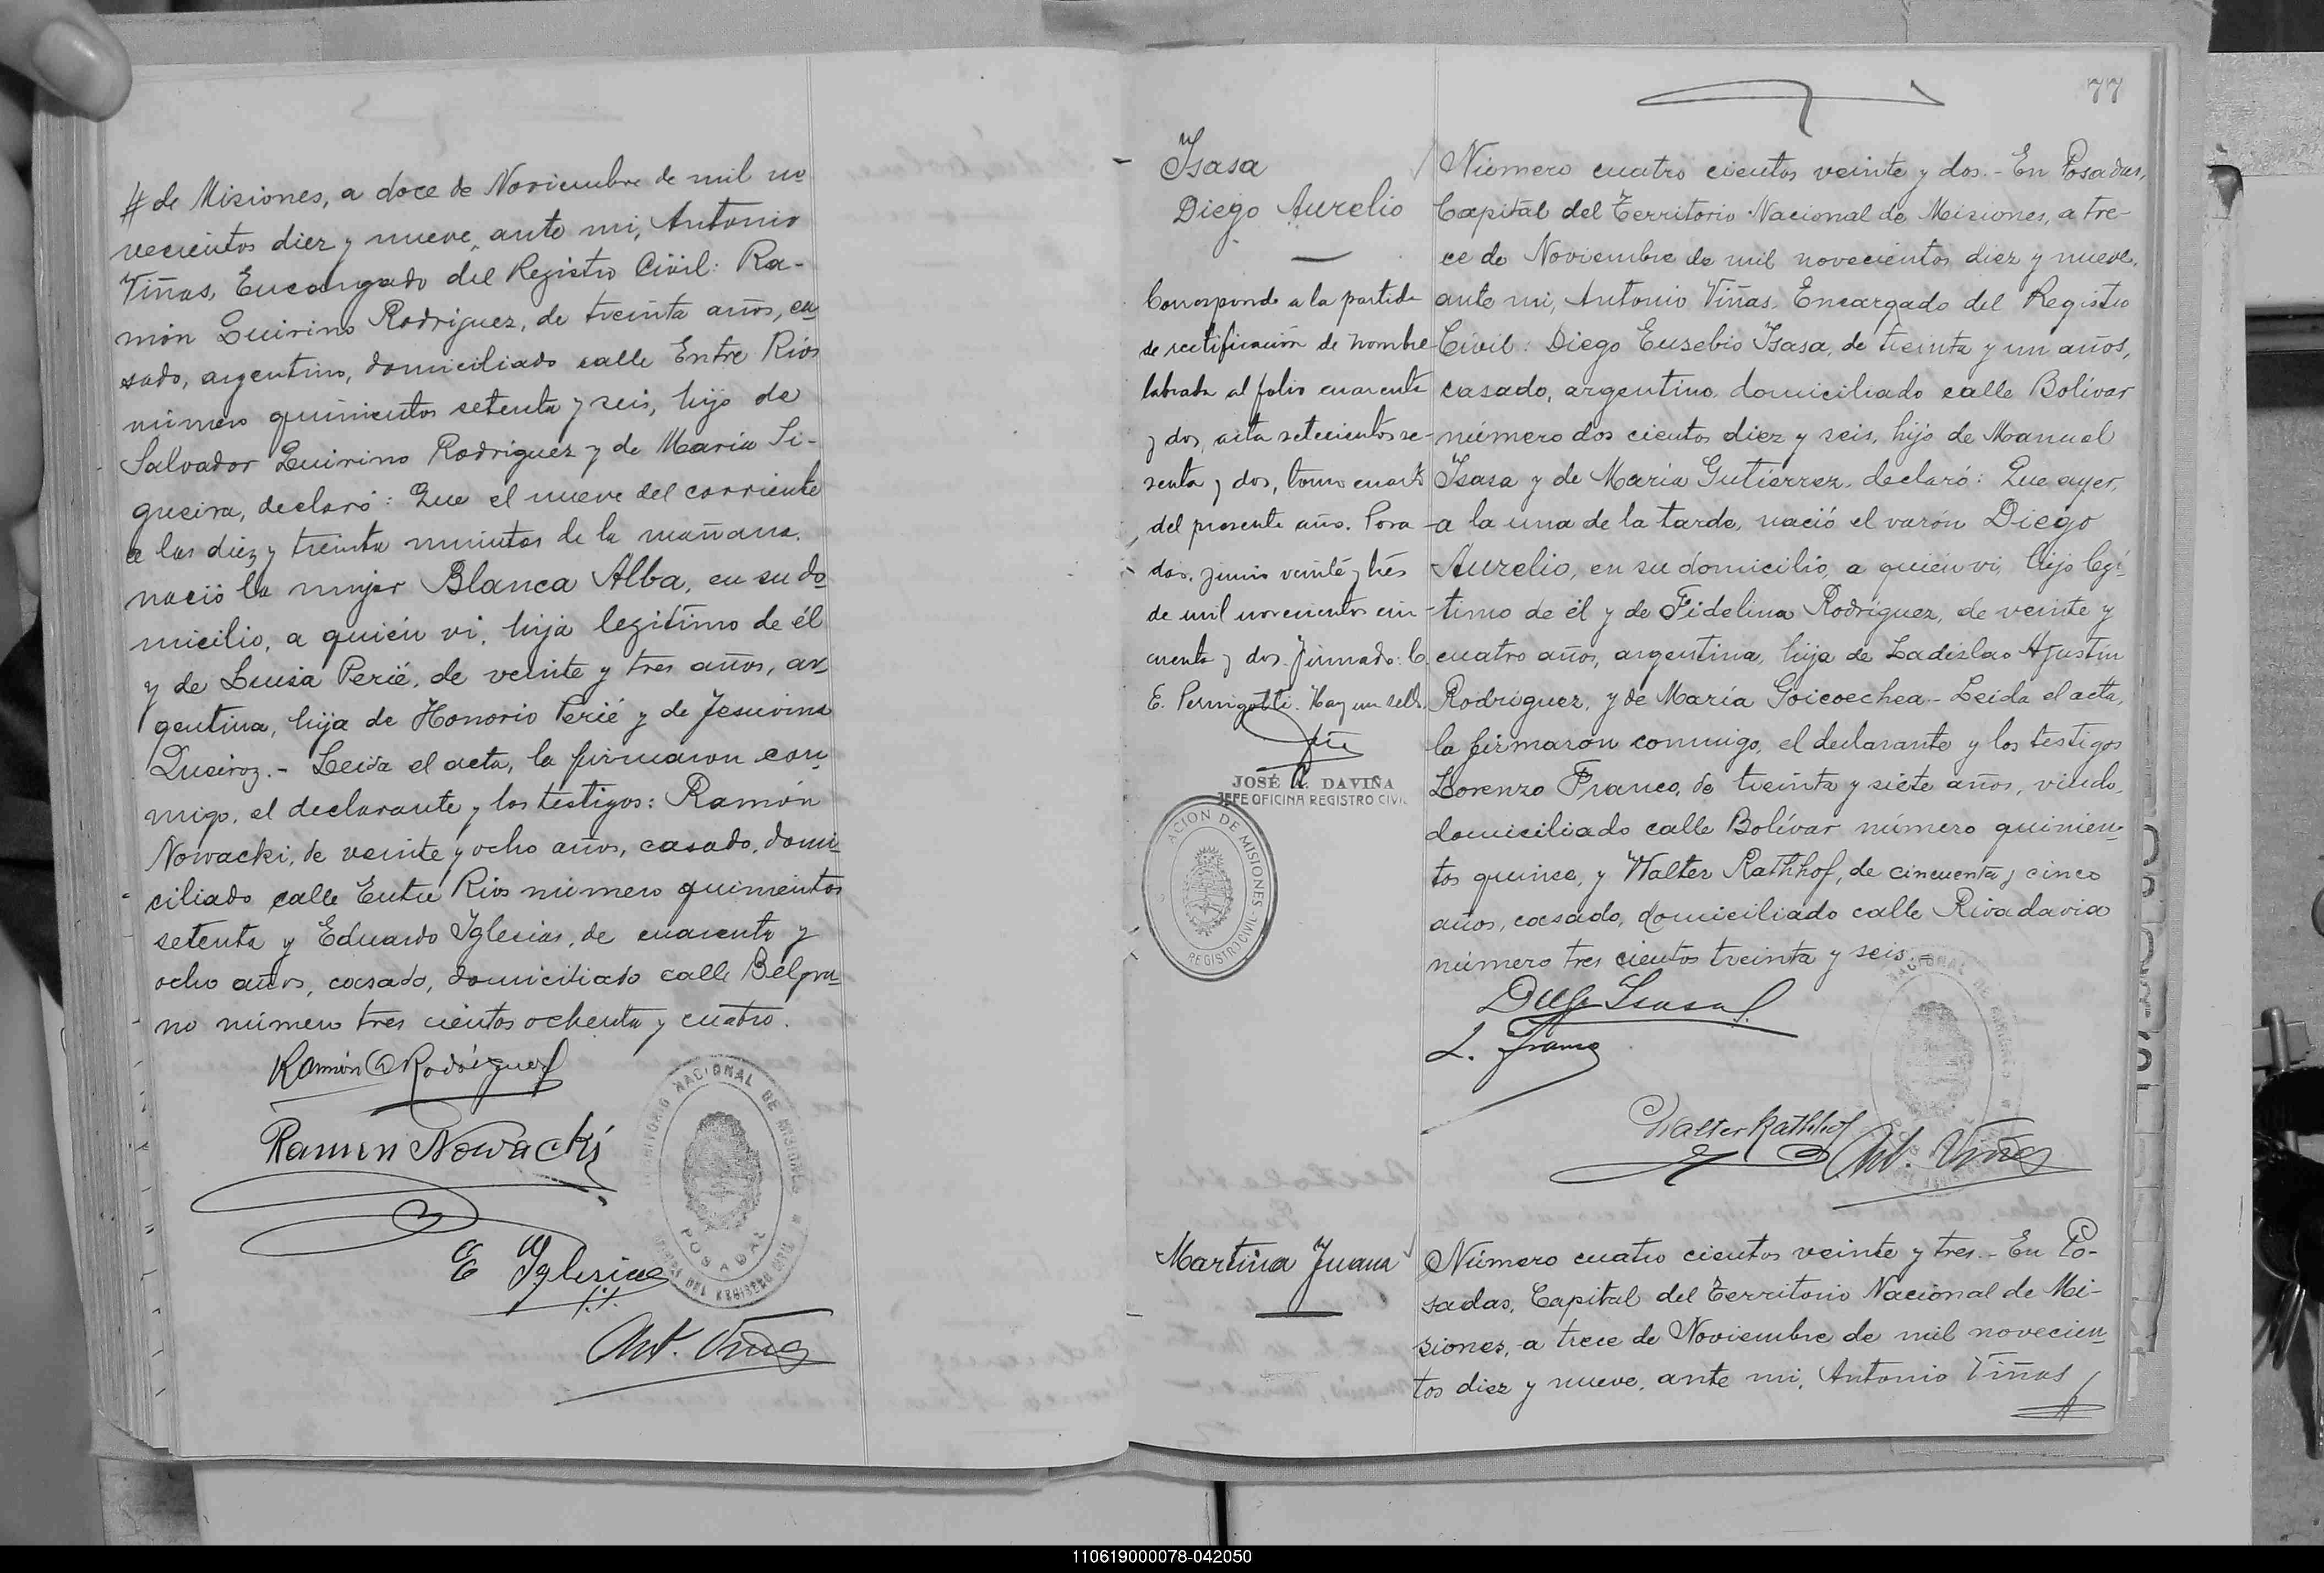 # de Misiones, a doce de Noviembre de mil no
vecientos diez y nueve, ante mi, Antonio
Viñas, Encargado del Registro Civil: Ra-
món Quirino Rodriguez, de treinta años, ca
sado, argentino, domiciliado calle Entre Rios
número quinientos setenta y seis, hijo de
Salvador Quirino Rodriguez y de Maria Si-
queira, declaró: Que el nueve del corriente
a las diez y treinta minutos de la mañana,
nació la mujer Blanca Alba, en su do
micilio, a quién vi, hija legítima de él
y de Luisa Perié, de veinte y tres años, ar
gentina, hija de Honorio Perié y de Jesuvina
Queiroz.- Leida el acta, la firmaron con
migo, el declarante y los testigos: Ramón
Nowacki, de veinte y ocho años, casado, domi
ciliado calle Entre Rios número quinientos
setenta y Eduardo Iglesias, de cuarenta y
ocho años, casado, domiciliado calle Belgra
no número tres cientos ochenta y cuatro.
Ramón Q Rodriguez
Ramon Nowacki
E Iglesias
Ant. Viñas
NACIONAL DE MISIONES
POSADAS
77
Isasa
Diego Aurelio
Corresponde a la partida
de rectificación de nombre
labrada al folio cuarenta
y dos, acta setecientos se-
senta y dos, tomo cuarto
del presente año. Posa
das, junio veinte y trés
de mil novecientos cin
cuenta y dos. firmado: C.
E. Pernigotti. Hay un sello.
JOSÉ A. DAVIÑA
JEFE OFICINA REGISTRO CIVIL
ACION DE MISIONES
REGISTRO CIVIL
Número cuatro cientos veinte y dos.- En Posadas,
Capital del Territorio Nacional de Misiones, a tre-
ce de Noviembre de mil novecientos diez y nueve,
ante mi, Antonio Viñas, Encargado del Registro
Civil: Diego Eusebio Isasa, de treinta y un años,
casado, argentino, domiciliado calle Bolívar
número dos cientos diez y seis, hijo de Manuel
Isasa y de María Gutierrez, declaró: Que ayer,
a la una de la tarde, nació el varón Diego
Aurelio, en su domicilio, a quién vi, hijo legí-
timo de él y de Fidelina Rodríguez, de veinte y
cuatro años, argentina, hija de Ladislao Agustín
Rodriguez, y de María Goicoechea.- Leida el acta,
la firmaron conmigo, el declarante y los testigos
Lorenzo Franco, de treinta y siete años, viudo,
domiciliado calle Bolívar número quinien
tos quince, y Walter Rathhof, de cincuenta y cinco
años, casado, domiciliado calle Rivadavia
número tres cientos treinta y seis.-
Isasa
L. Franco
Walter Rathhof
Ant. Viñas
Martina Juana
Número cuatro cientos veinte y tres.- En Po-
sadas, Capital del Territorio Nacional de Mi-
siones, a trece de Noviembre de mil novecien
tos diez y nueve, ante mi, Antonio Viñas
110619000078-042050